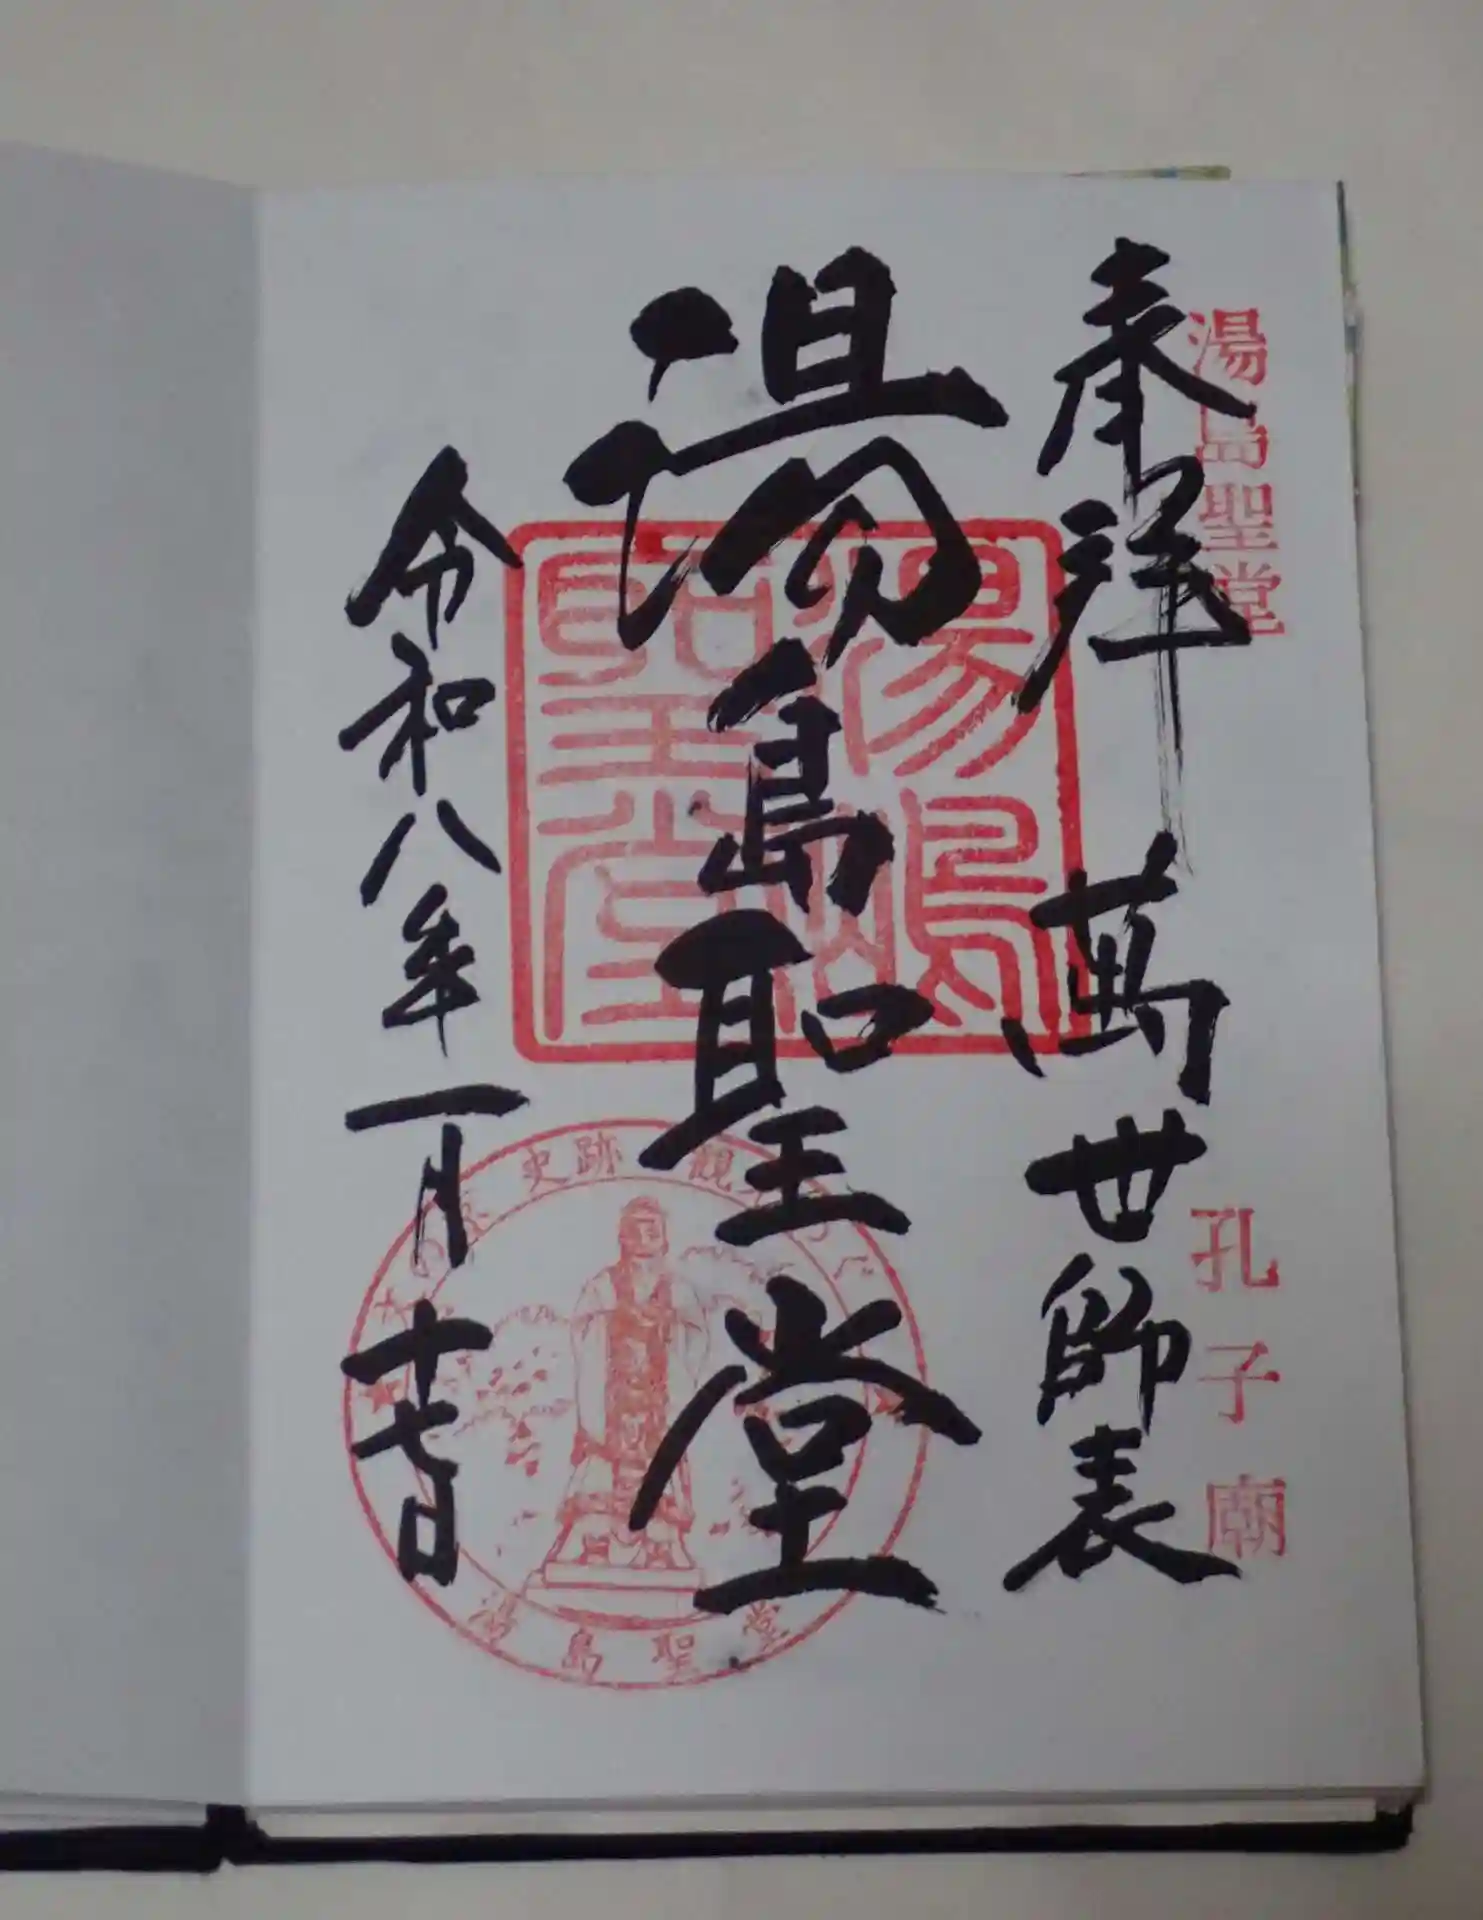 湯島聖堂
孔子廟
奉拝 萬世師表
湯島聖堂
湯島聖堂
令和八年一月十七日
史跡 観
湯島聖堂